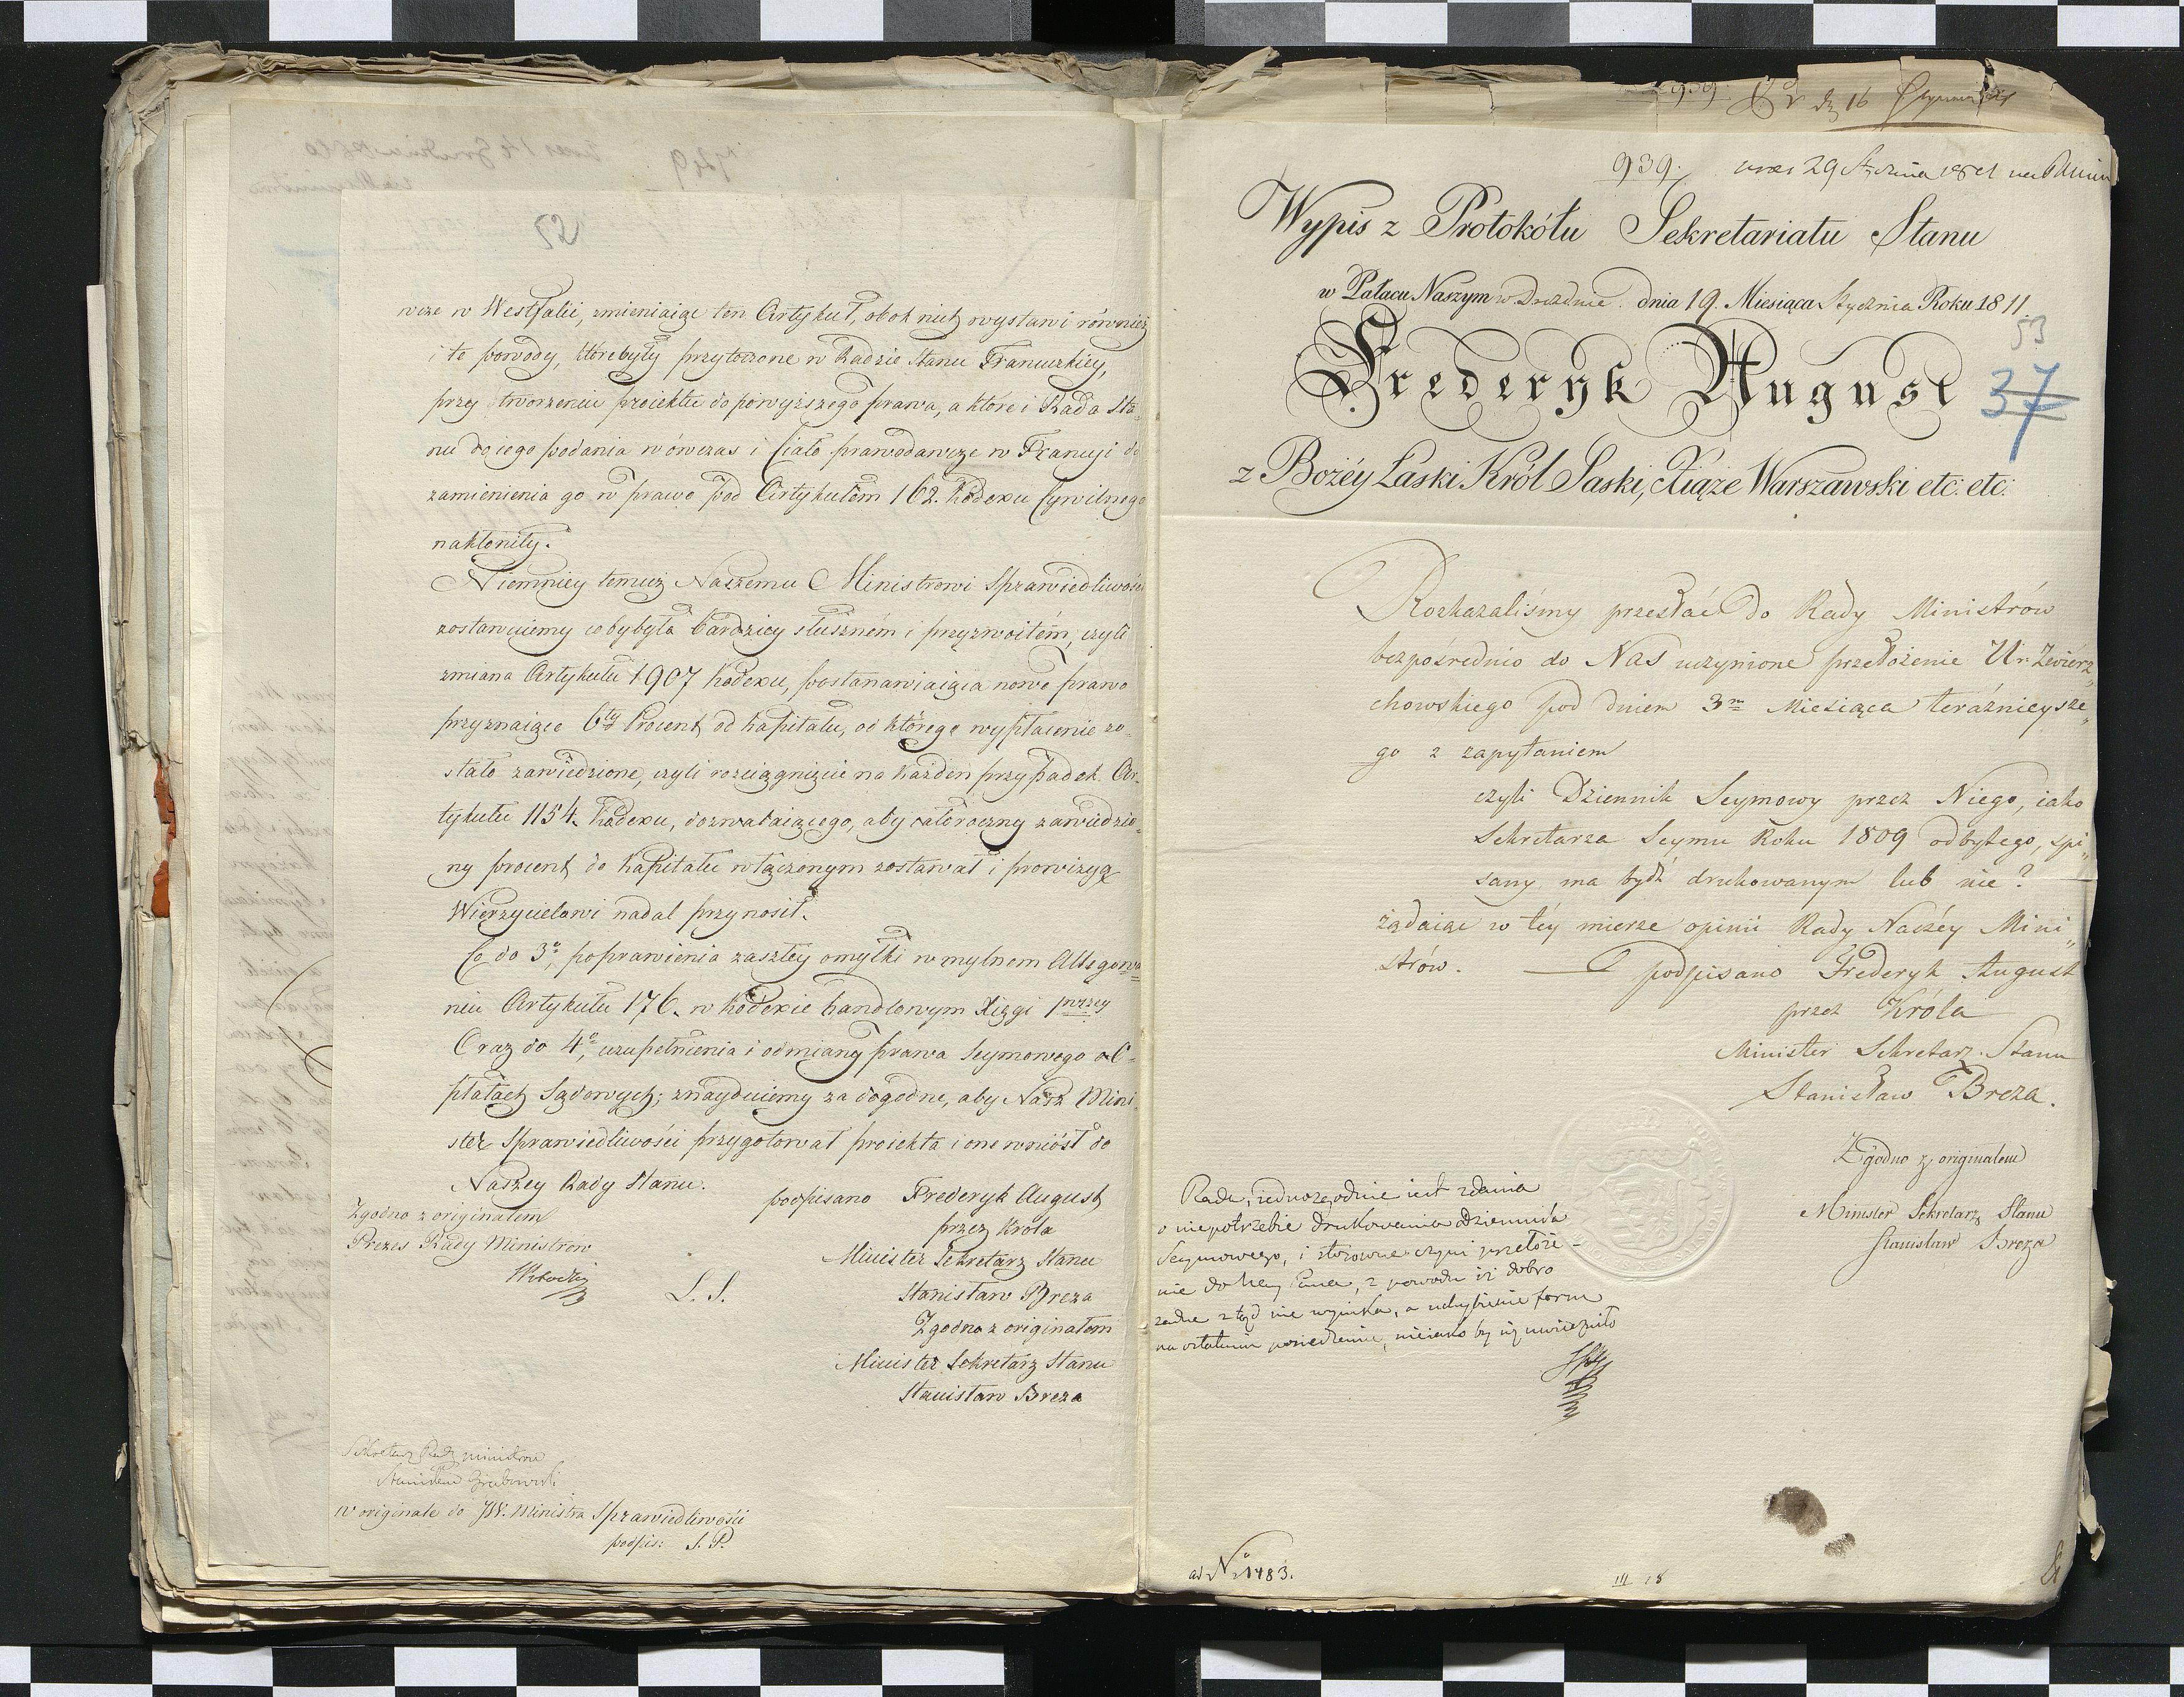 52
wcze w Westfalii, zmieniaiąc ten Artykuł, obok nich wystawi również
i te powody, które były przytoczone w Radzie Stanu Francuzkiey,
przy tworzeniu proiektu do powyższego prawa, a które i Rada Sta-
nu do iego podania wówczas i Ciało prawodawcze w Francyi do
zamienienia go w prawo pod Artykułem 162. Kodexu Cywilnego
nakłoniły.
Niemniey temuż Naszemu Ministrowi Sprawiedliwości
zostawuiemy coby było bardziey słusznem i przyzwoitém, czyli
zmiana Artykułu 1907 Kodexu, postanawiaiąca nowe prawo
przyznaiące 6ty Procent od kapitału, od którego wypłacenie zo-
stało zawiedzione, czyli rozciągnięcie na każden przypadek Ar-
tykułu 1154. Kodexu, dozwalaiącego, aby całoroczny zawiedzio-
ny procent do kapitału włączonym zostawał i prowizyą
Wierzycielowi nadal przynosił.
Co do 3o, poprawienia zaszłey omyłki w mylnem Allegowa
niu Artykułu 176. w Kodexie handlowym Xięgi 1wszey
Oraz do 4o, uzupełnienia i odmiany prawa Seymowego o O-
płatach Sądowych; znayduiemy za dogodne, aby Nasz Mini-
ster Sprawiedliwości przygotował proiekta i one wniósł do
Naszey Rady Stanu.
podpisano Frederyk August
przez Króla
Minister Sekretarz Stanu
Stanisław Breza
Zgodno z originałem
Minister Sekretarz Stanu
Stanisław Breza
Zgodno z originałem
Prezes Rady Ministrów
L. S.
Sekretarz Rady Ministrów
Stanisław Grabowski
w originale do JW. Ministra Sprawiedliwości
podpis: S. P.
939. 16 Stycznia
939. 29 Stycznia 1811
Wypis z Protokółu Sekretariatu Stanu
w Pałacu Naszym w Dreźdnie dnia 19. Miesiąca Stycznia Roku 1811.
53
Frederyk August
37
z Bożéy Łaski Król Saski, Xiąże Warszawski etc: etc:
Rozkazaliśmy przesłać do Rady Ministrów
bezpośrednio do Nas uczynione przełożenie Ur. Zwierz„
chowskiego pod dniem 3m Miesiąca teraźnieysze„
go z zapytaniem
czyli Dziennik Seymowy przez Niego, iako
Sekretarza Seymu Roku 1809 odbytego, spi„
sany, ma bydź drukowanym lub nie?
żądaiąc w téy mierze opinii Rady Naszéy Mini„
strów. podpisano Frederyk August
przez Króla
Minister Sekretarz Stanu
Stanisław Breza.
Zgodno z originałem
Minister Sekretarz Stanu
Stanisław Breza
Rada, iednozgodnie iest zdania
o niepotrzebie drukowania dziennika
Seymowego, i stosowne czyni przełoże-
nie do Nay. Pana, z powodu iż dobro
żadne ztąd nie wynika, a uchybienie form
na ostatnim posiedzeniu, nieiako by się uwieczniło
ad No 1483.
III 18